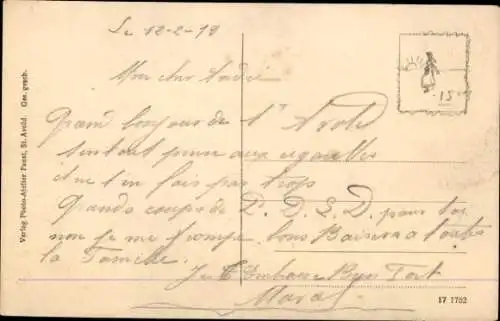 Le 12-2-19
Mon cher André
Grand bonjour de l'
surtout pense aux
que t'en fais pas trop
Grands coups de P. D. S. D. pour toi
non je me trompe. Bons Baisers a toute
la Famille.
Je t'Embrasse Bien Fort
15
Verlag Photo-Atelier Faust, St. Avold. Ges. gesch.
17 1752